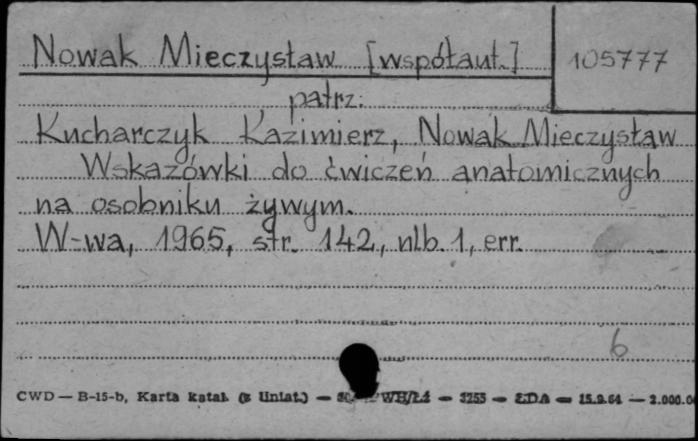 Nowak Mieczysław [współaut.] 105777
patrz:
Kucharczyk Kazimierz, Nowak Mieczysław
Wskazówki do ćwiczeń anatomicznych
na osobniku żywym.
W-wa, 1965, str. 142, nlb. 1, err.
6
CWD — B-15-b, Karta katal. (z liniat.) — WH/Łi — 3255 — ŁDA — 15.9.64 — 2.000.0